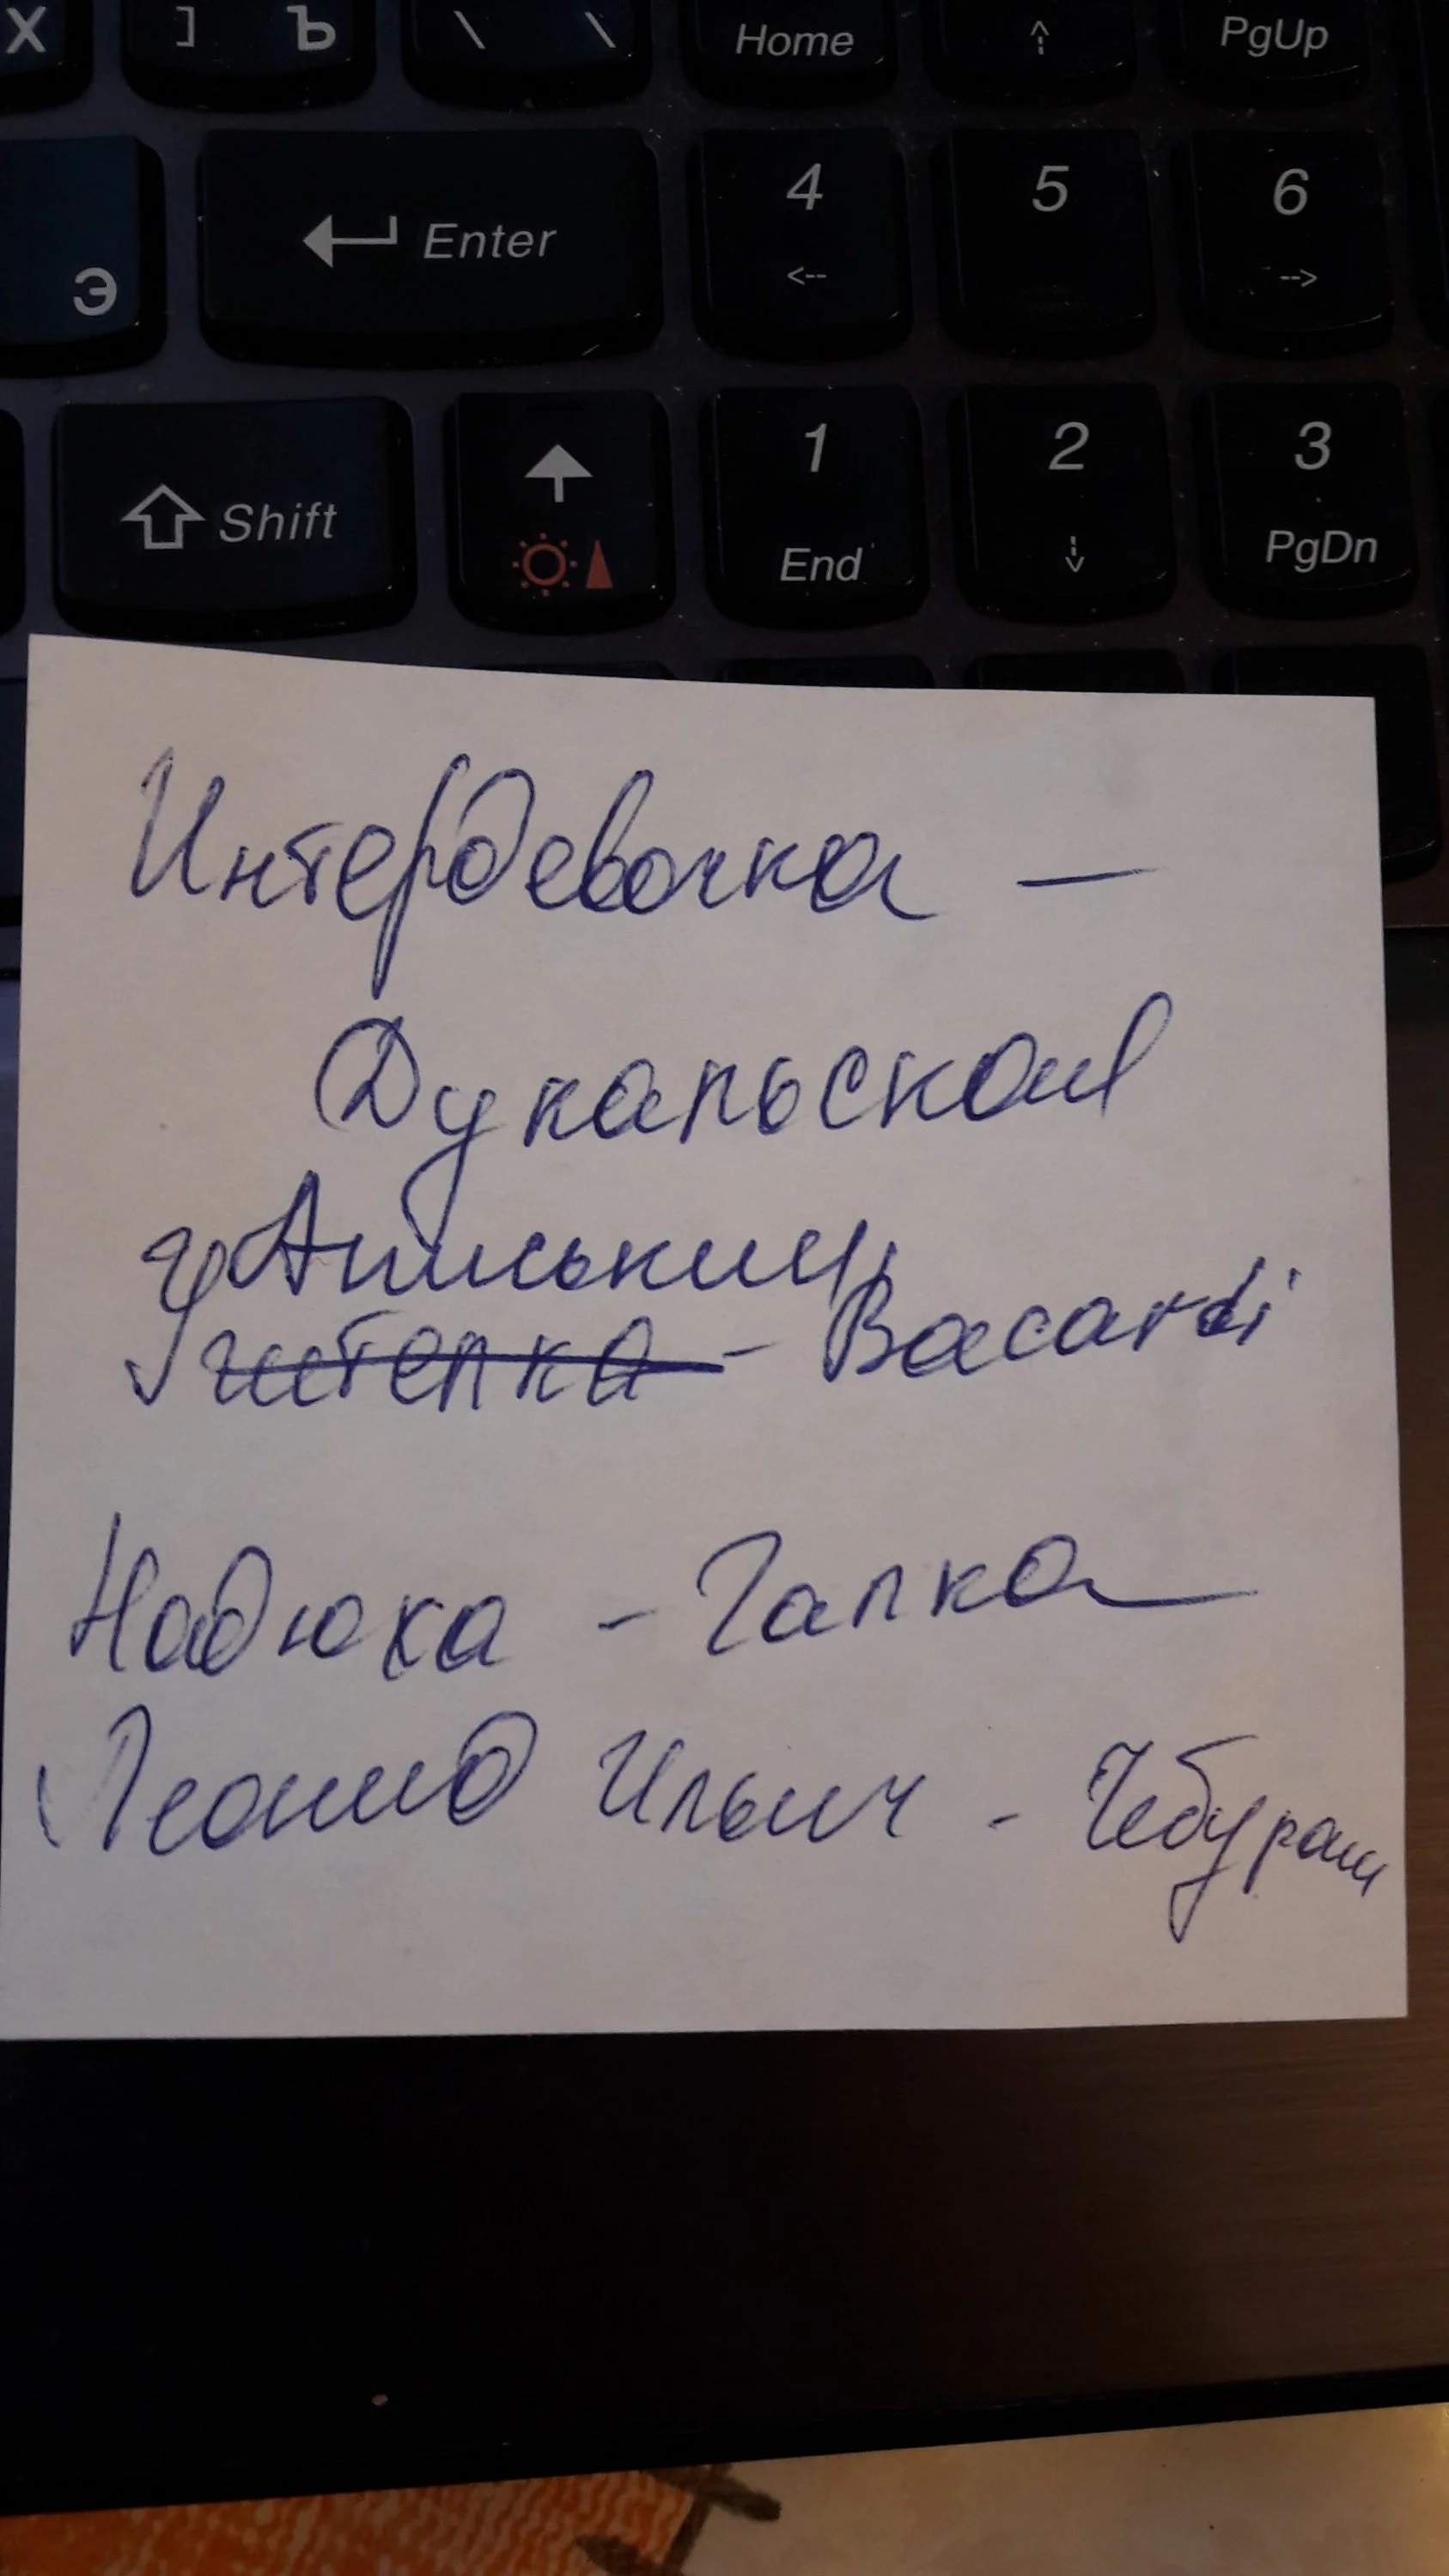 Х ] Ъ \ \ Home PgUp
Э Enter 4 5 6
<-- -->
Shift 1 2 3
End PgDn
Интердевочка —
Дукальской
- Bacardi
Надюха - Галка
Леонид Ильич - Чебураш